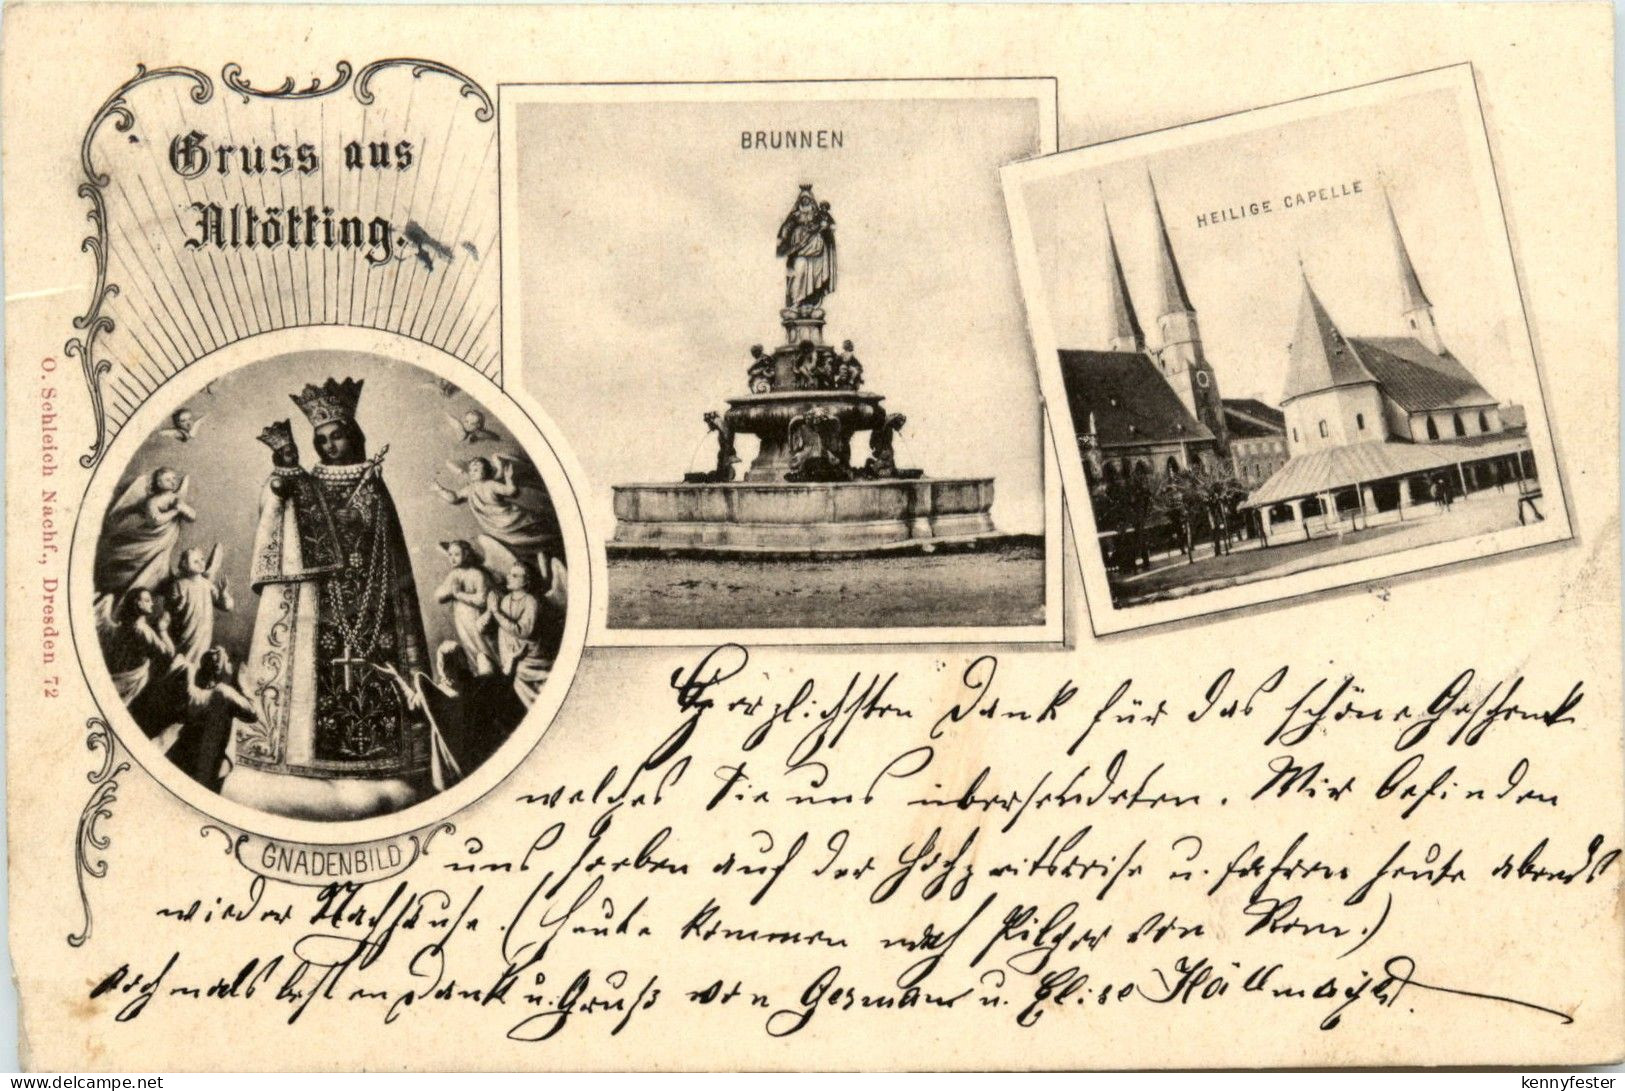 Gruss aus
Altötting.
BRUNNEN
HEILIGE CAPELLE
O. Schleich Nachf., Dresden 72
GNADENBILD
Herzlichsten Dank für das schöne Geschenk
welches Sie uns übersendeten. Wir befinden
uns soeben auf der Hochzeitsreise u. fahren heute abends
wieder Nachhause. (Heute kommen noch Pilger von Rom.)
Nochmals besten Dank u. Gruß von German u. Elise
kennyfester